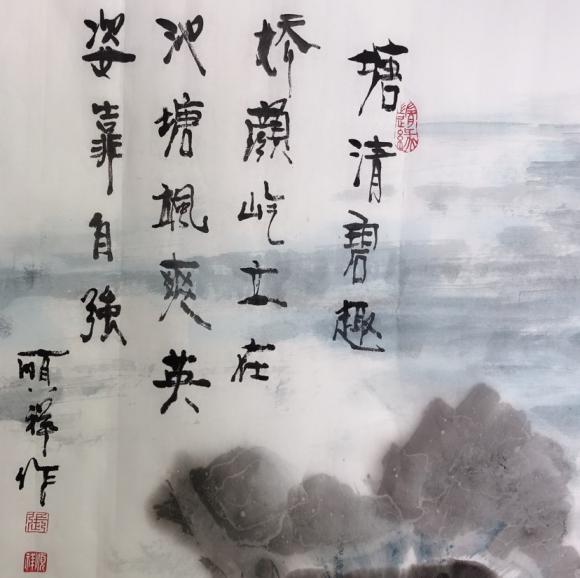 塘清碧趣
桥颜屹立在
池塘飒爽英
姿靠自强
顺祥作